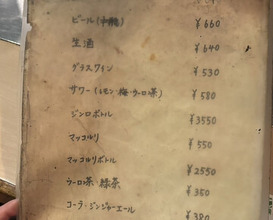 ビール(中瓶) ¥660
生酒 ¥640
グラスワイン ¥530
サワー(レモン・梅・ウーロ茶) ¥580
ジンロボトル ¥3550
マッコルリ ¥550
マッコルリボトル ¥2550
ウーロ茶・緑茶 ¥350
コーラ・ジンジャーエール ¥380